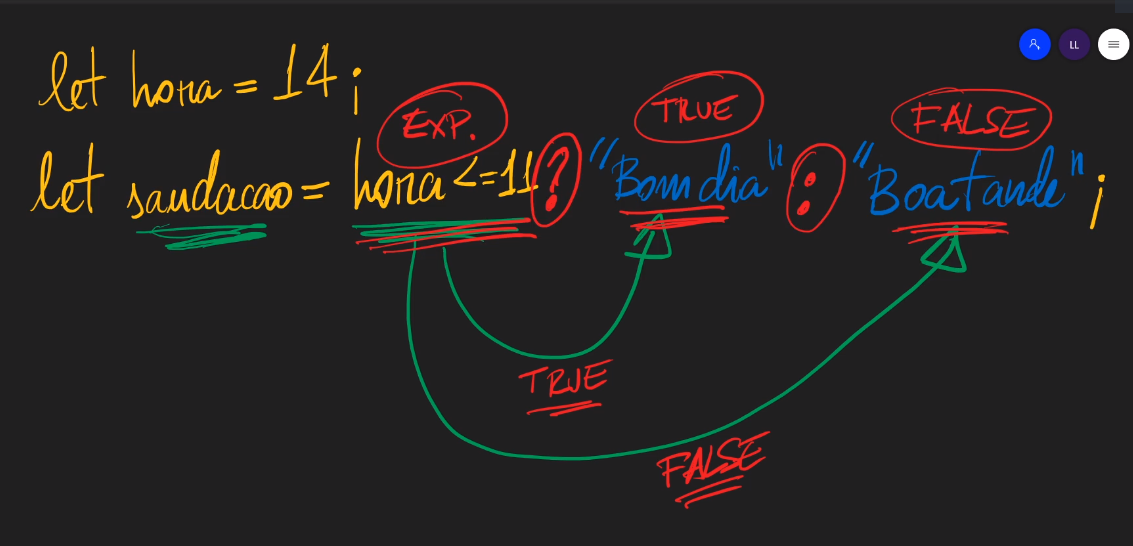 let hora = 14;
EXP. TRUE FALSE
let saudacao = hora <=11 ? "Bom dia" : "Boa tarde";
TRUE
FALSE
LL